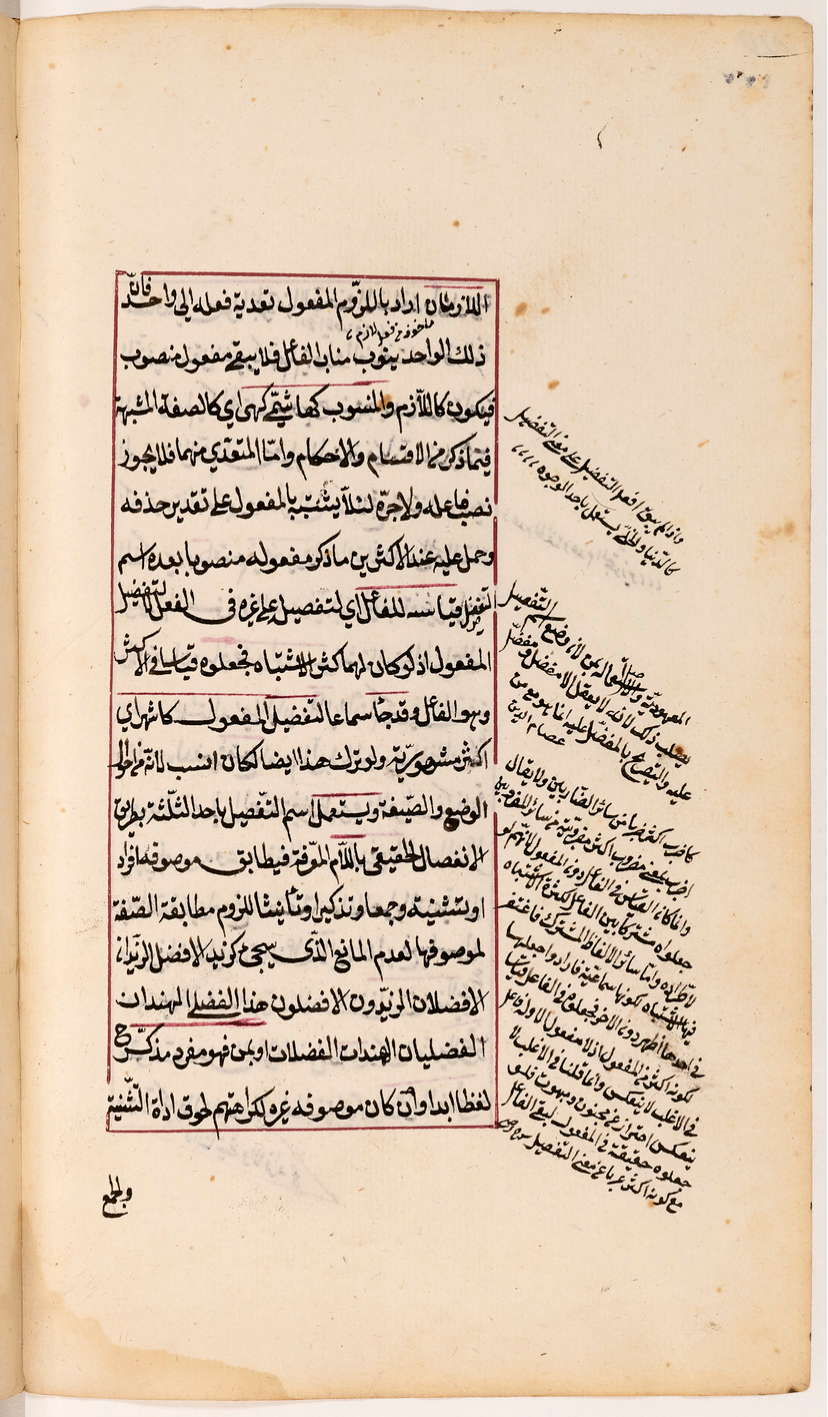 اللازمان اراد باللزوم المفعول تعدية فعله الى واحد فان
ذلك الواحد ينوب مناب الفاعل فلا يبقى مفعول منصوب
ماخوذ من فعل لازم
فيكون كاللازم والمنسوب كهاشمي كهى اى كالصفة المشبهة
فيما ذكر من الاقسام والاحكام واما المتعدى منهما فلا يجوز
نصب فاعله ولا جره لئلا يشتبه بالمفعول على تقدير حذفه
وحمل عليه عند الاكثرين ما ذكر مفعوله منصوبا بعده اسم
التفضيل قياسه للفاعل اى لتفضيل على غيره فى الفعل لا لتفضيل
المفعول اذ لو كان لهما كثر الاشتباه فجعلوه قياسا فى الاكثر
وهو الفاعل وقد جا سماعا لتفضيل المفعول كاشهر اى
اكثر مشهورية ولو ترك هذا ايضا لكان انسب لانه من احوال
الوضع والصيغة ويستعمل اسم التفضيل باحد الثلثة بطريق
الانفصال الحقيقى باللام المعرفة فيطابق موصوفه افراد
او تثنية وجمعا وتذكيرا وتأنيثا للزوم مطابقة الصفة
لموصوفها لعدم المانع الذى سيجئ كزيد الافضل الزيدان
الافضلان الزيدون الافضلون هذا الفضلى الهندان
الفضليان الهندات الفضلات او بمن فهو مفرد مذكر
لفظا ابدا وان كان موصوفه غيره لكراهتهم لحوق اداة التثنية
والجمع
واذا لم يبق افعل التفضيل على معنى التفضيل
كالدنيا والجلى يستعمل باحد الوجوه
التفضيل
لانه لا يعقل الا مفضل ومفضل
عليه والتصريح بالمفضل عليه انما هو مع من
عصام الدين
كاضرب اكثر ضربا من سائر الضاربين ولا يقال
اضرب بمعنى مضروب اكثر مضروبية من سائر المضروبين
وانما كان القياس فى الفاعل دون المفعول لانهم لو
جعلوه مشتركا بين الفاعل لكثرة الاشتباه
لاطراده واما سائر الالفاظ المشتركة فاغتفر
فيها الاشتباه لكونها سماعية فارادوا جعلها
فى احدهما اظهر دون الاخر فجعلوه فى الفاعل قياسا
لكونه اكثر من المفعول اذ لا مفعول الا وله فاعل
فى الاغلب لا ينعكس وانما قلنا فى الاغلب لا
ينعكس احترازا عن مجنون ومبهوت فلو
جعلوه حقيقة فى المفعول لبقى الفاعل
مع كونه اكثر عريا عن معنى التفضيل